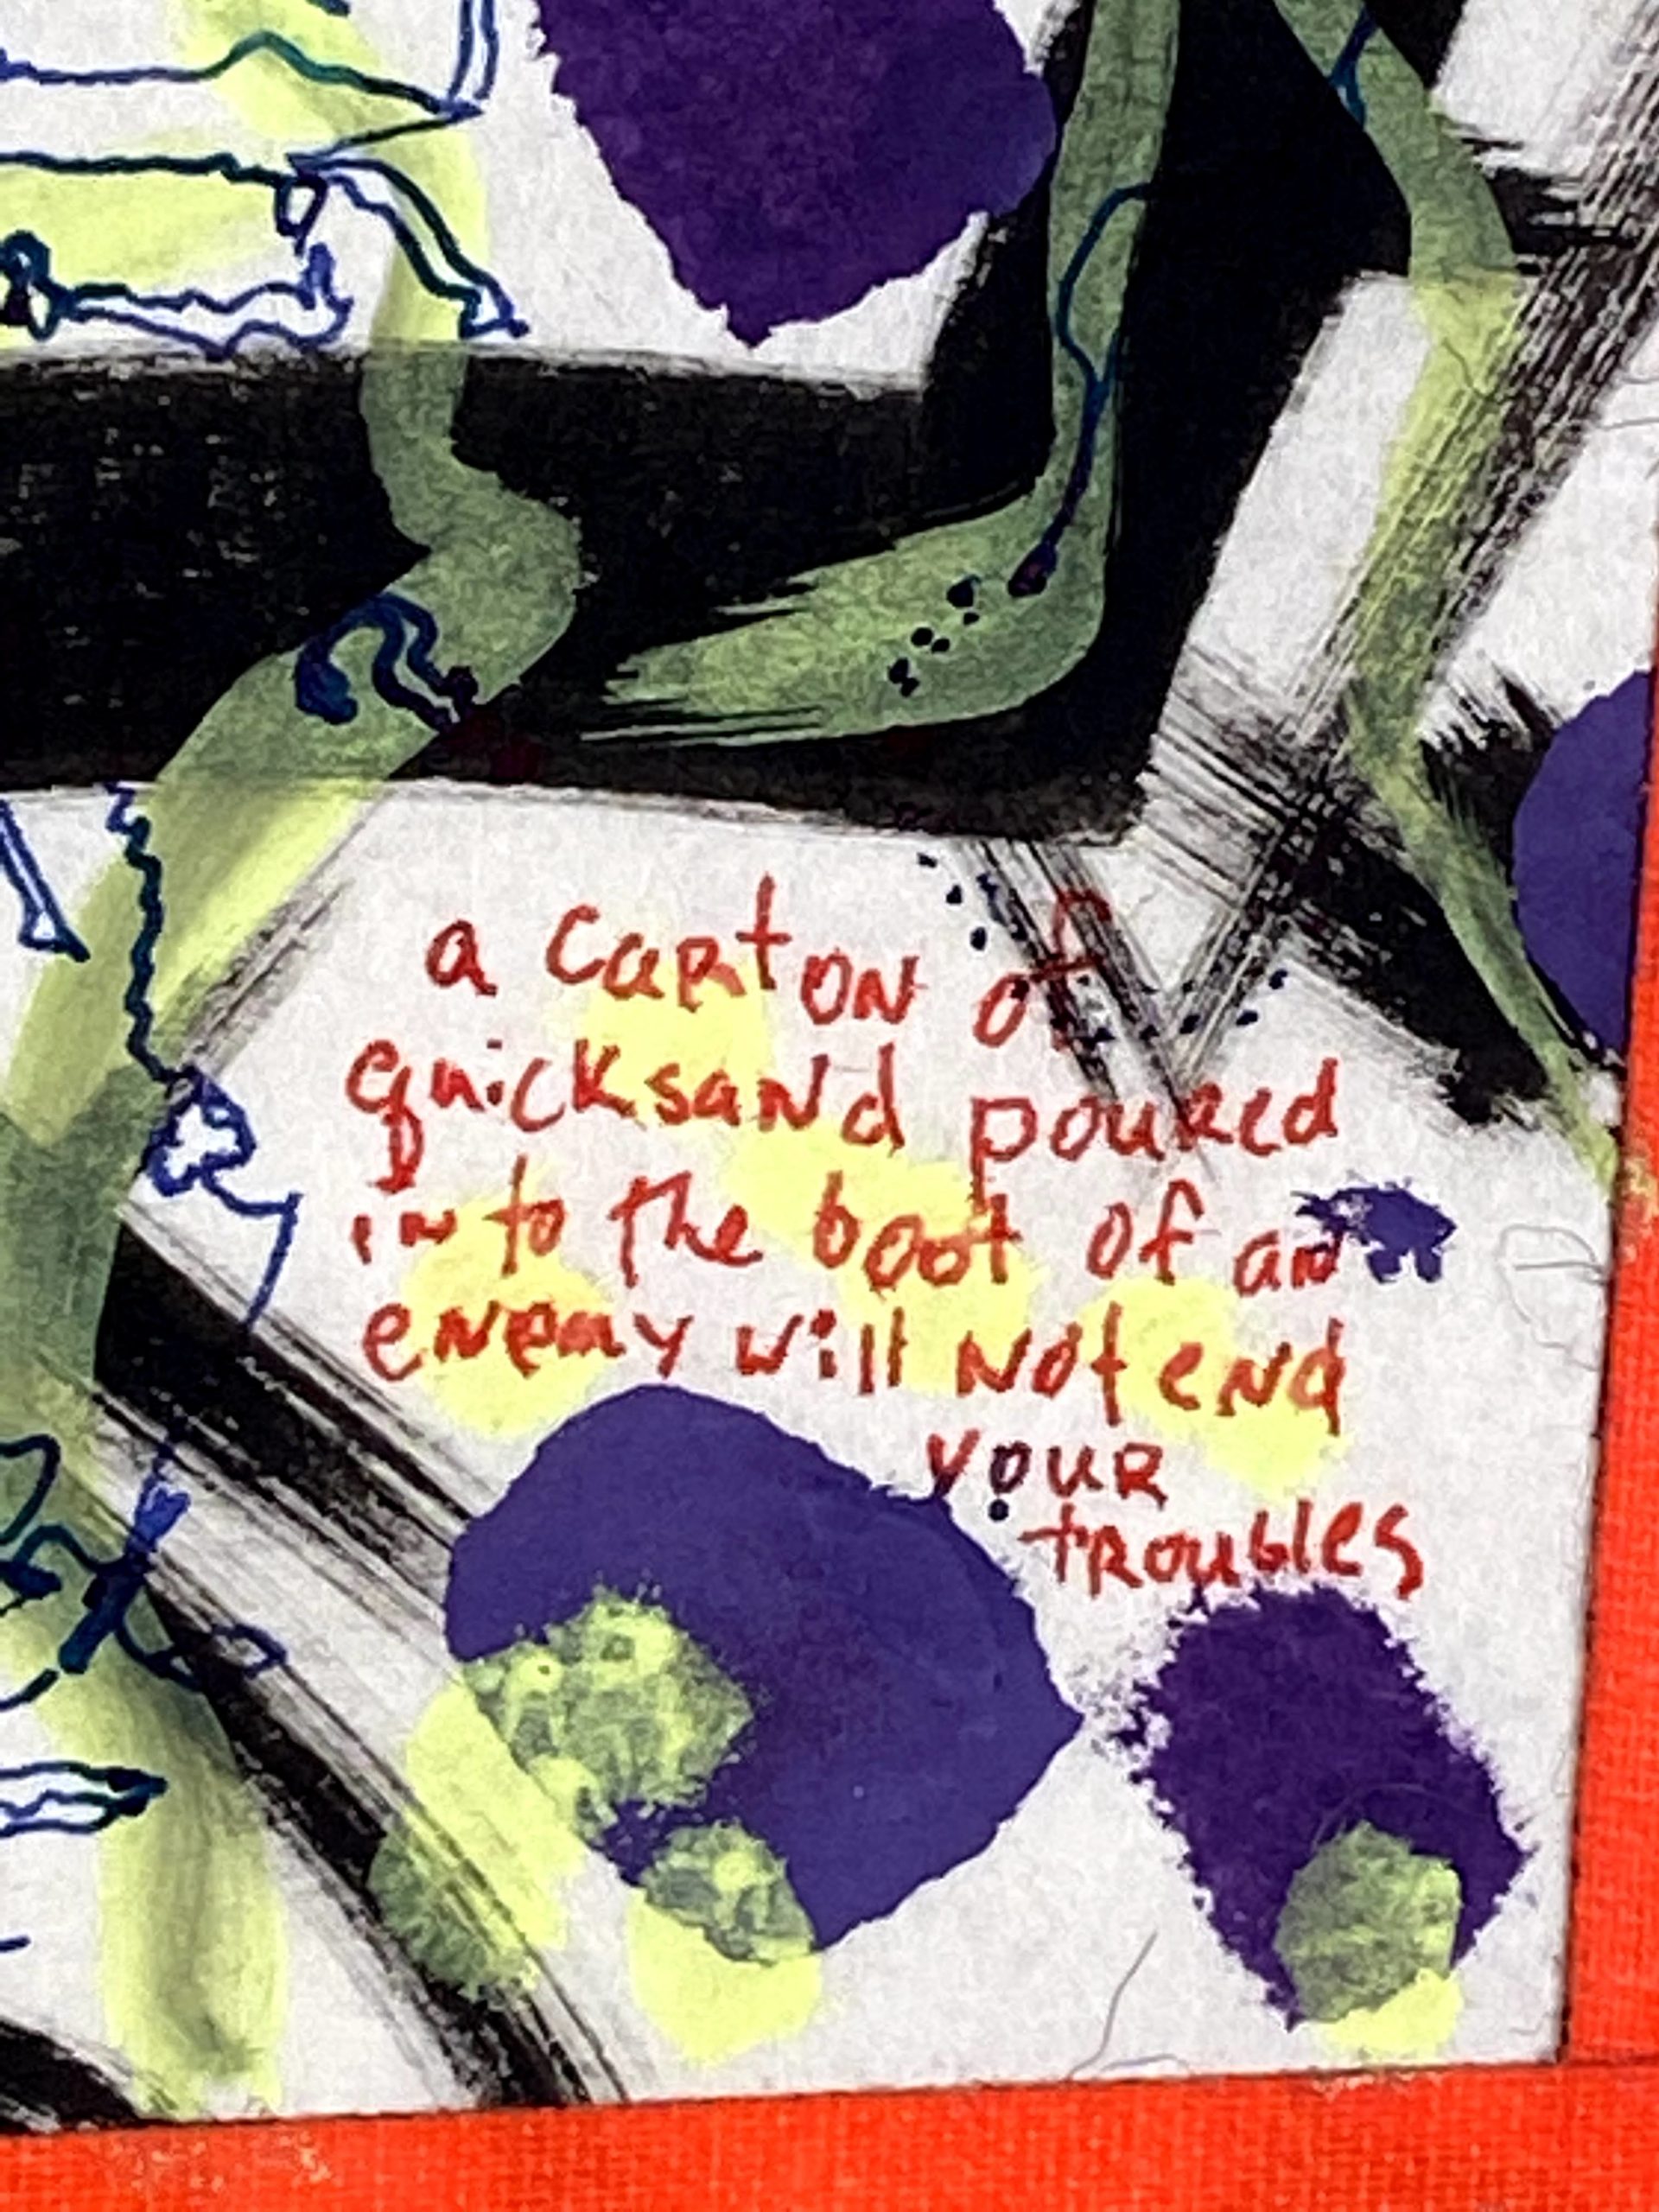 a carton of
quicksand poured
into the boot of an
enemy will not end
your
troubles